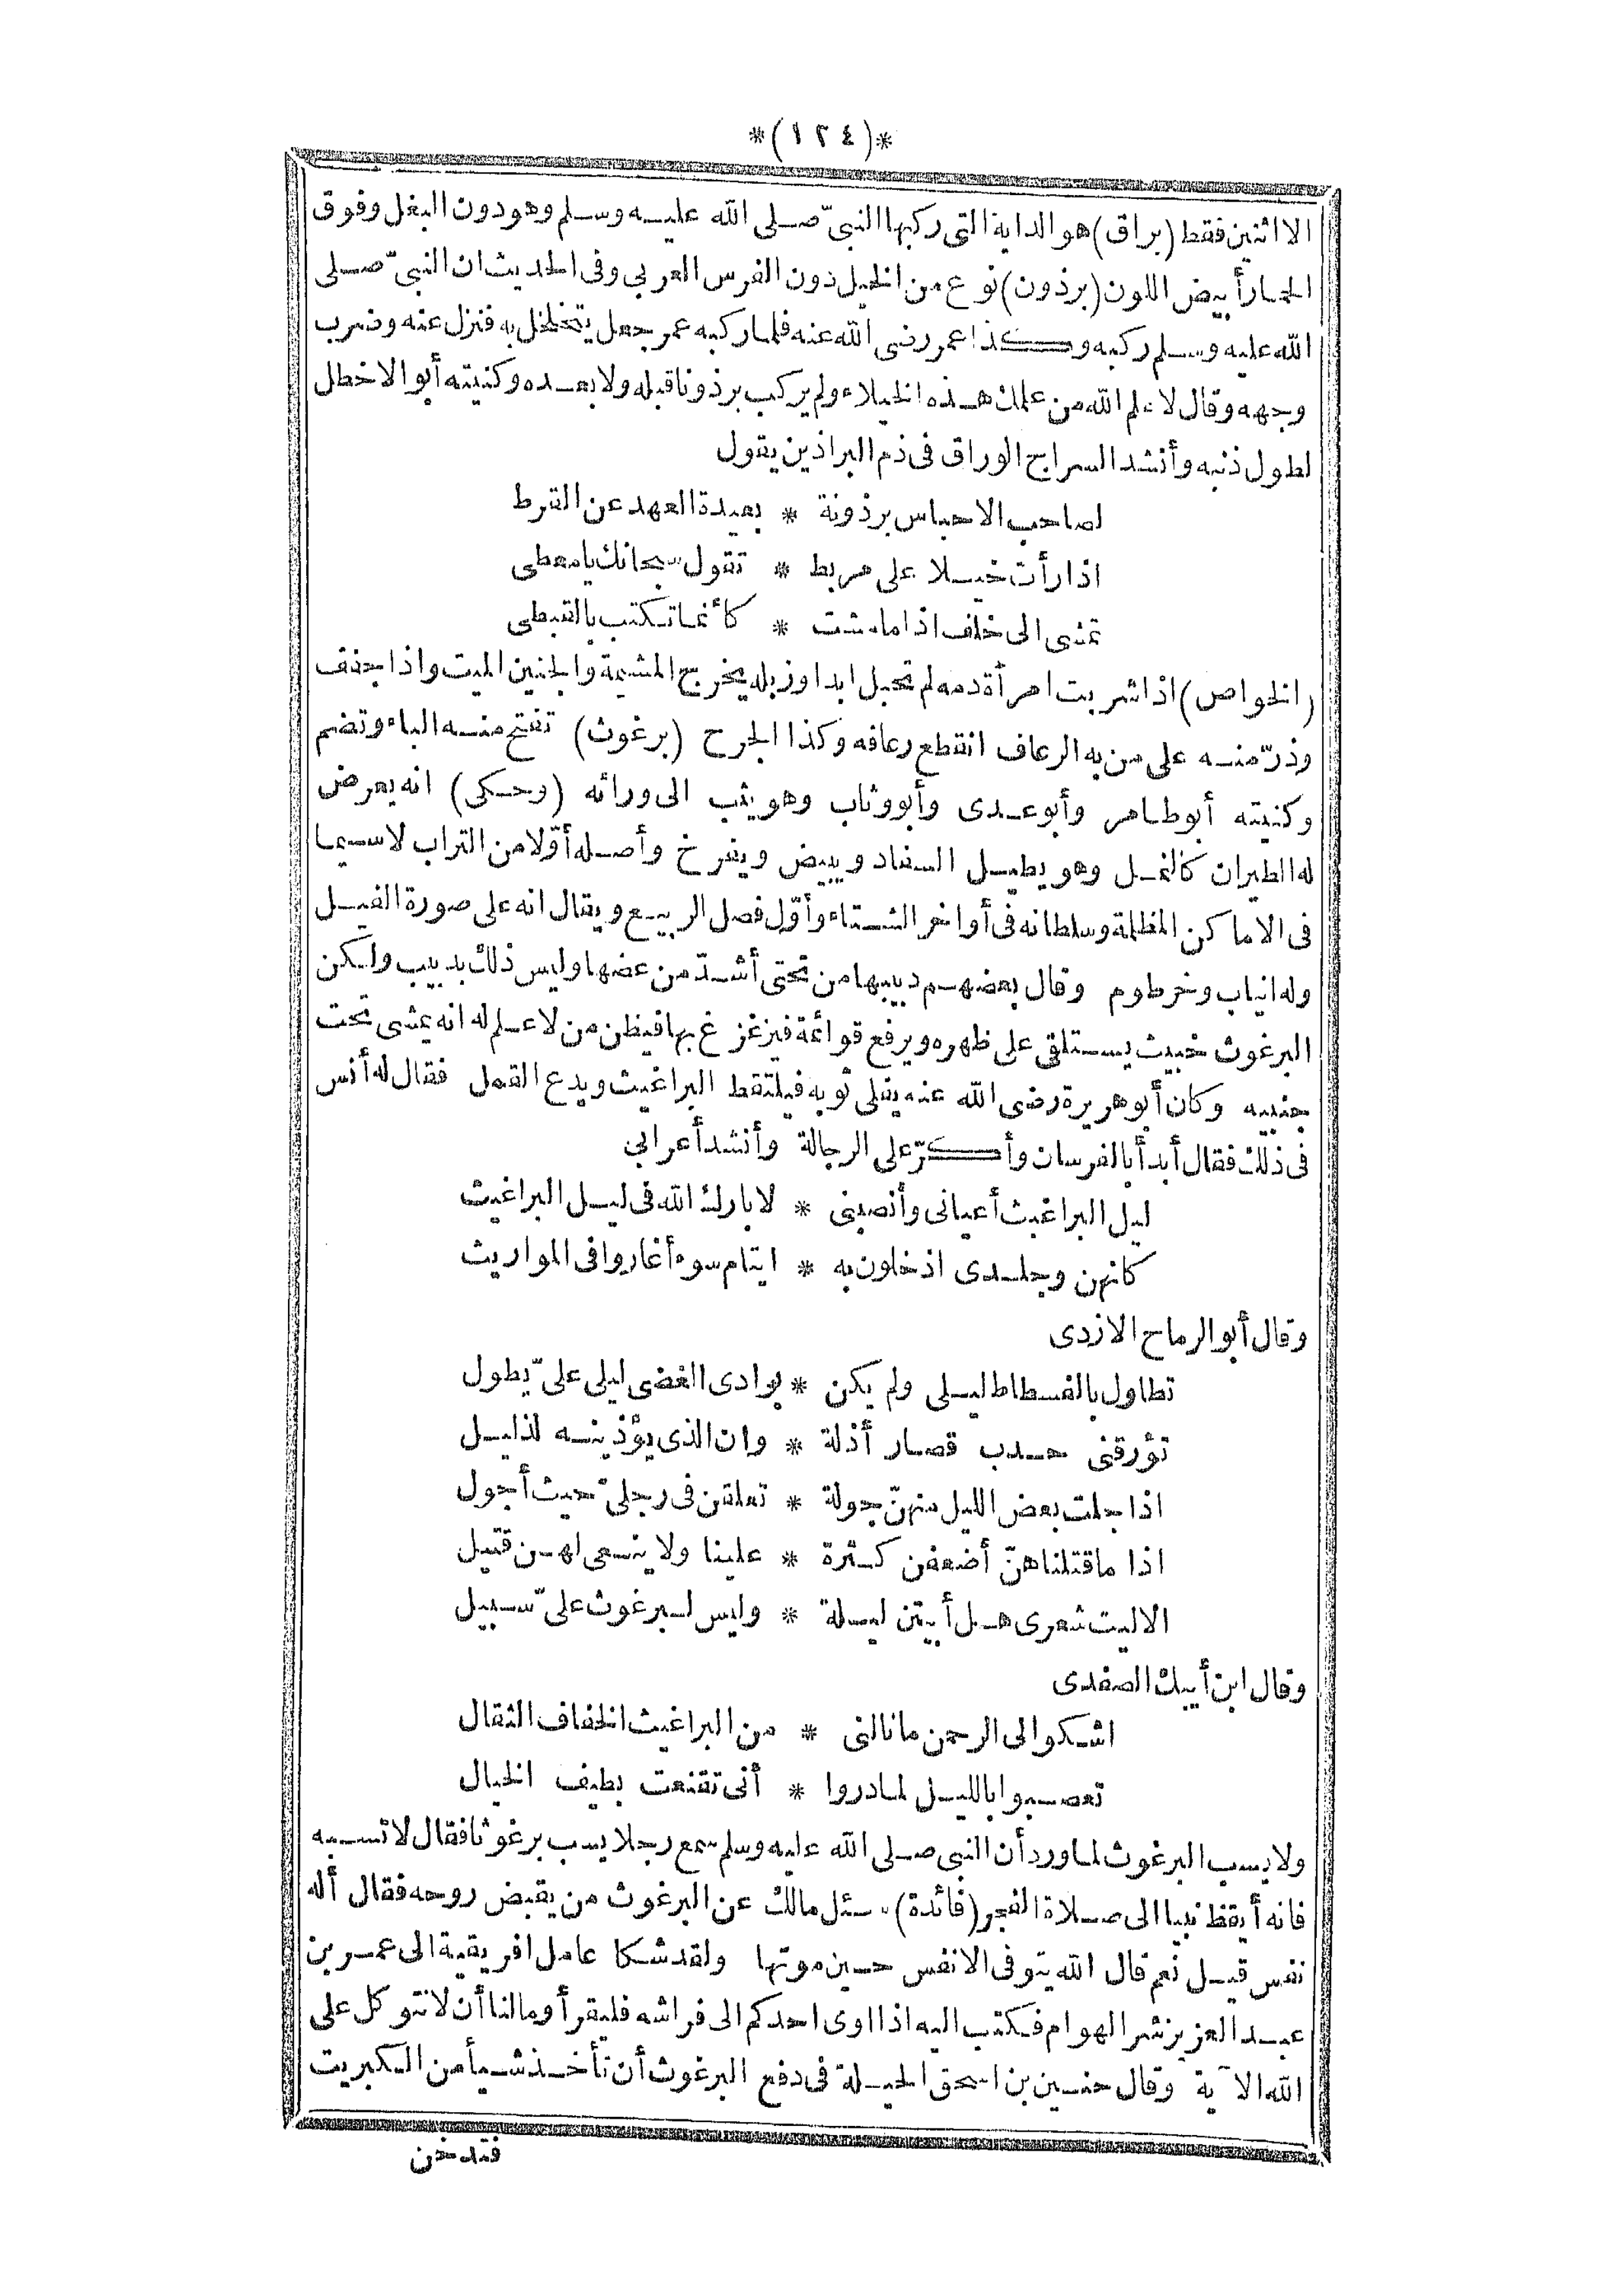 *(١٢٤)*
الا اثنين فقط (براق) هو الدابة التى ركبها النبىّ صلى الله عليه وسلم وهو دون البغل وفوق
الحمار أبيض اللون (برذون) نوع من الخيل دون الفرس العربى وفى الحديث ان النبىّ صلى
الله عليه وسلم ركبه وكذا عمر رضى الله عنه فلما ركبه عمر جعل يتخلخل به فنزل عنه وضرب
وجهه وقال لا علم الله من علمك هذه الخيلاء ولم يركب برذونا قبله ولا بعده وكنيته أبو الاخطل
لطول ذنبه وأنشد السراج الوراق فى ذم البراذين يقول
لصاحب الاحباس برذونة * بعيدة العهد عن القرط
اذا رأت خيلا على مربط * تقول سبحانك يا معطى
تمشى الى خلف اذا ما مشت * كأنما تكتب بالقبطى
(الخواص) اذا شربت امرأة دمه لم تحبل ابدا وزبله يخرج المشيمة والجنين الميت واذا جفف
وذرّ منه على من به الرعاف انقطع رعافه وكذا الجرح (برغوث) تفتح منه الباء وتضم
وكنيته أبو طاهر وأبو عدى وأبو وثاب وهو يثب الى ورائه (وحكى) انه يعرض
له الطيران كالنمل وهو يطيل السفاد ويبيض ويفرخ وأصله أوّلا من التراب لا سيما
فى الاماكن المظلمة وسلطانه فى أواخر الشتاء وأوّل فصل الربيع ويقال انه على صورة الفيل
وله انياب وخرطوم وقال بعضهم دبيبها من تحتى أشدّ من عضها وليس ذلك بدبيب ولكن
البرغوث خبيث يستلقى على ظهره ويرفع قوائمة فيزغزغ بها فيظن من لا علم له انه يمشى تحت
جنبيه وكان أبو هريرة رضى الله عنه يفلى ثوبه فيلتقط البراغيث ويدع القمل فقال له أنس
فى ذلك فقال أبدأ بالفرسان وأكرّ على الرجالة وأنشد أعرابى
ليل البراغيث أعيانى وأنصبنى * لا بارك الله فى ليل البراغيث
كانهن وجلدى اذ خلون به * ايتام سوء أغاروا فى المواريث
وقال أبو الرماح الازدى
تطاول بالفسطاط ليلى ولم يكن * بوادى الغضى ليلى علىّ يطول
تؤرقنى حدب قصار أذلة * وان الذى يؤذينه لذليل
اذا جلت بعض الليل منهنّ جولة * تعلقن فى رجلىّ حيث أجول
اذا ما قتلناهنّ أضعفن كثرة * علينا ولا ينعى لهن قتيل
الا ليت شعرى هل أبيتن ليلة * وليس لبرغوث علىّ سبيل
وقال ابن أيبك الصفدى
اشكو الى الرحمن ما نالنى * من البراغيث الخفاف الثقال
تعصبوا بالليل لما دروا * أنى تقنعت بطيف الخيال
ولا يسب البرغوث لما ورد أن النبى صلى الله عليه وسلم سمع رجلا يسب برغوثا فقال لا تسبه
فانه أيقظ نبيا الى صلاة الفجر (فائدة) سئل مالك عن البرغوث من يقبض روحه فقال أله
نفس قيل نعم قال الله يتوفى الانفس حين موتها ولقد شكا عامل افريقية الى عمر بن
عبد العزيز شر الهوام فكتب اليه اذا اوى احدكم الى فراشه فليقرأ وما لنا أن لا نتوكل على
الله الآية وقال حنين بن اسحق الحيلة فى دفع البرغوث أن تأخذ شيأ من الكبريت
فتدخن